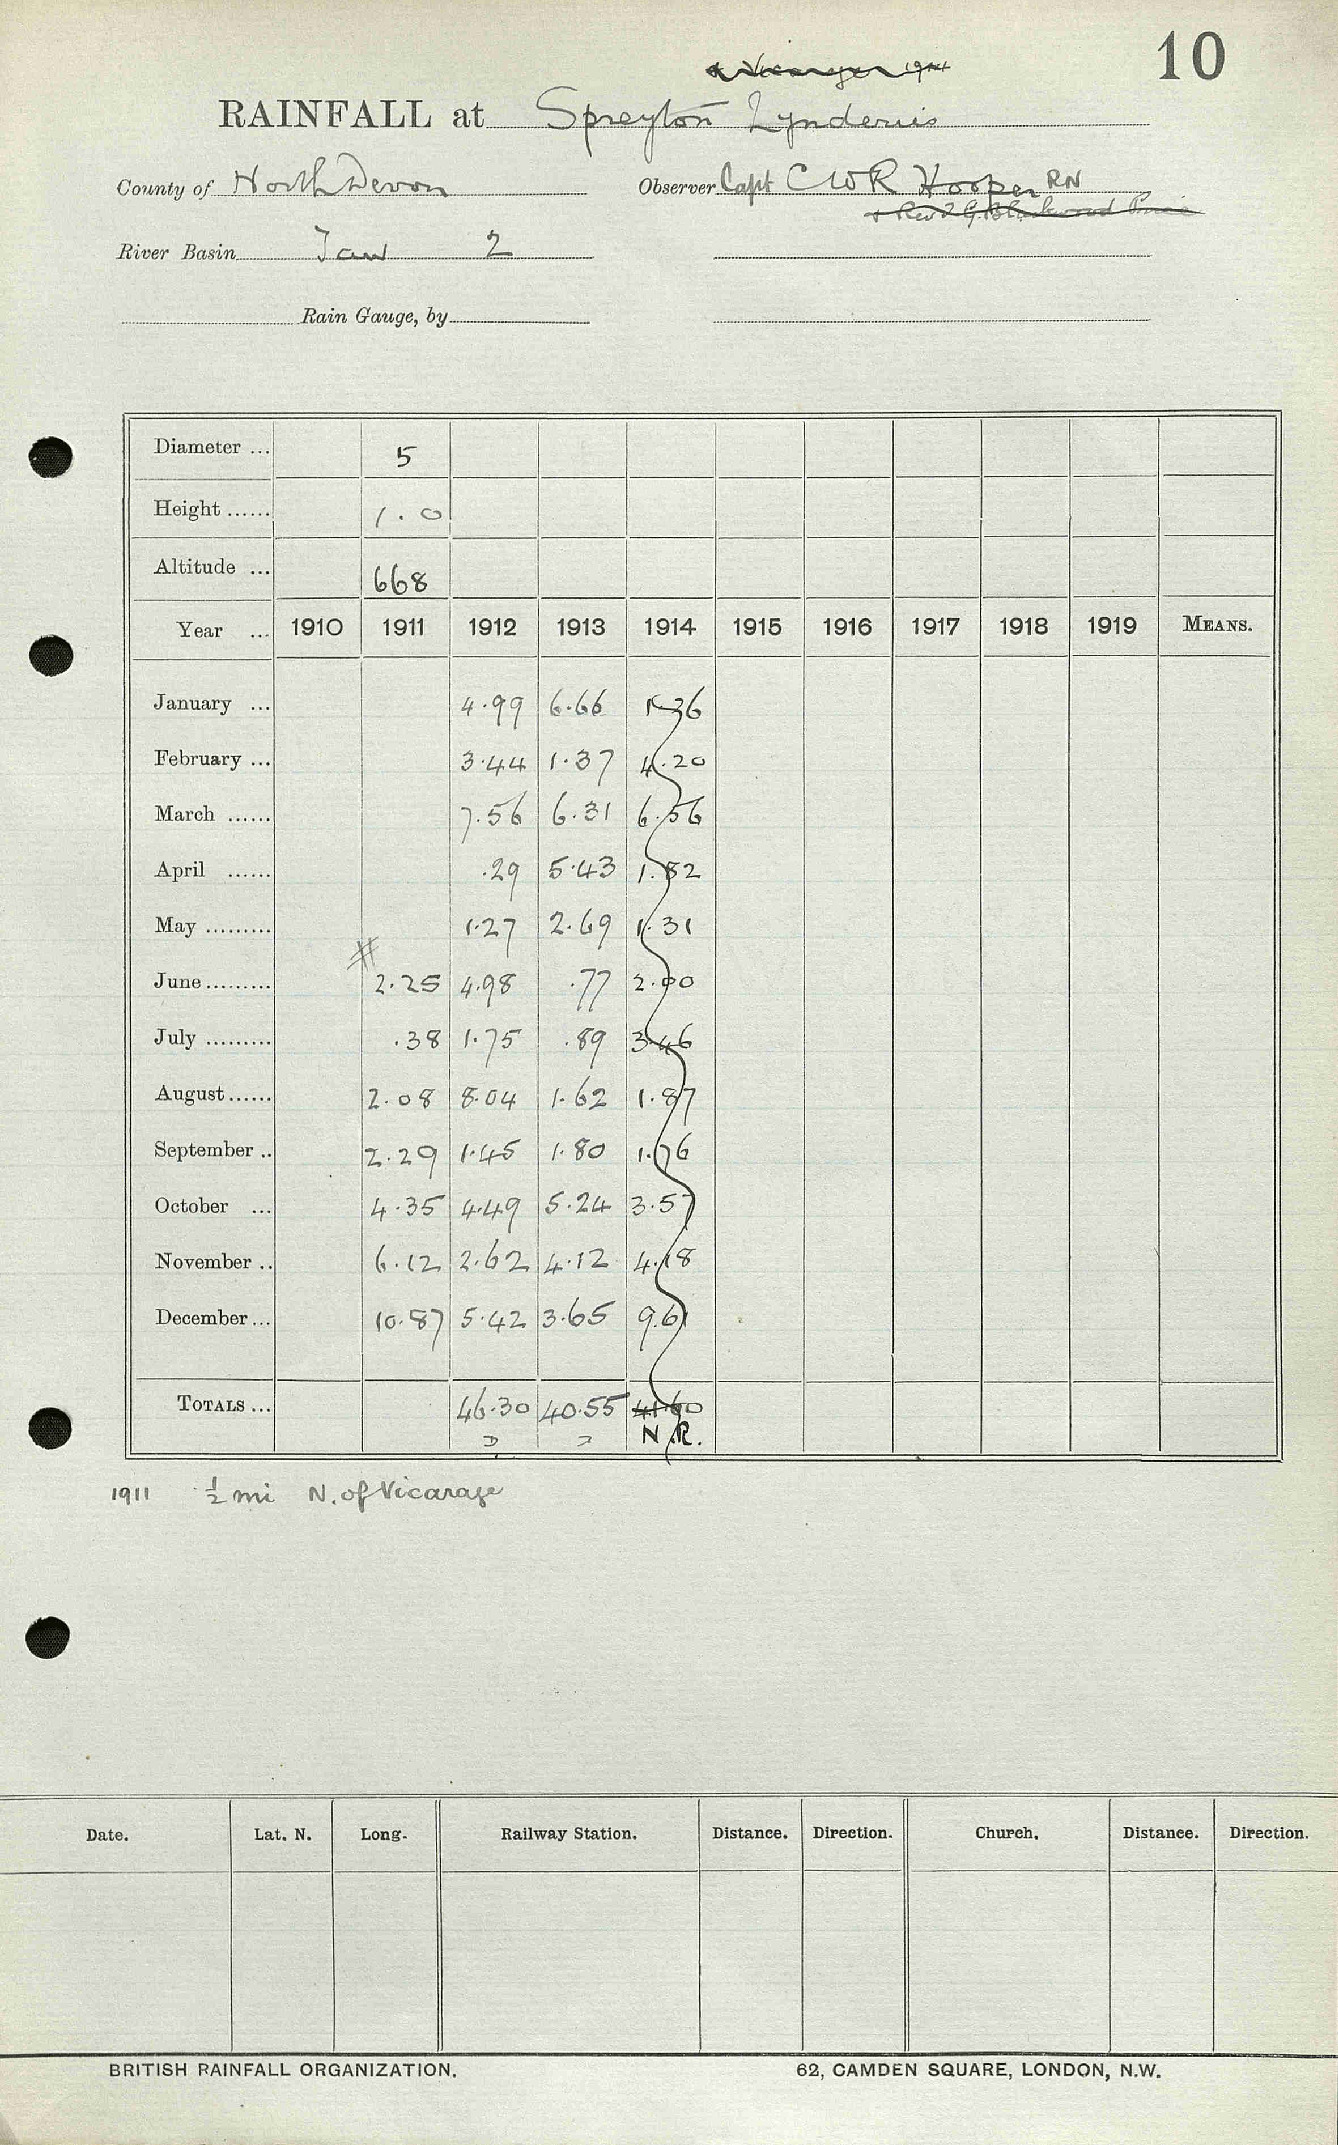 10
& Vicarage 1911
RAINFALL at Spreyton
County of North Devon Observer Capt C W R Hooper RN
+ Rev
River Basin Taw 2
Rain Gauge, by
Diameter ... 5
Height ...... 1.0
Altitude ... 668
Year ... 1910 1911 1912 1913 1914 1915 1916 1917 1918 1919 MEANS.
January ... 4.99 6.66 1.36
February ... 3.44 1.37 4.20
March ...... 7.56 6.31 6.56
April ...... .29 5.43 1.82
May ......... 1.27 2.69 1.31
#
June ......... 2.25 4.98 .77 2.00
July ......... .38 1.75 .89 3.46
August ...... 2.08 8.04 1.62 1.87
September .. 2.29 1.45 1.80 1.76
October ... 4.35 4.49 5.24 3.57
November .. 6.12 2.62 4.12 4.18
December ... 10.87 5.42 3.65 9.61
TOTALS ... 46.30 40.55 41.60
N.R.
1911 ½ mi N. of Vicarage
Date. Lat. N. Long. Railway Station. Distance. Direction. Church. Distance. Direction.
BRITISH RAINFALL ORGANIZATION. 62, CAMDEN SQUARE, LONDON, N.W.